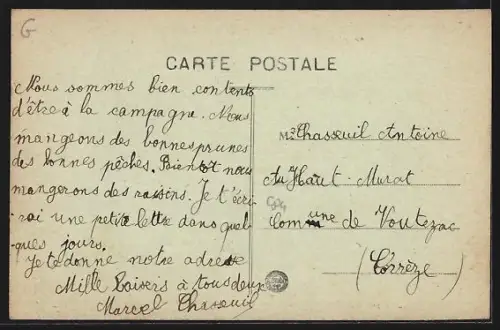 G
CARTE POSTALE
Nous sommes bien contents
d'être à la campagne. Nous
mangeons des bonnes prunes
des bonnes pêches. Bientot nous
mangerons des raisins. Je t'écri-
rai une petite lettre dans quel-
ques jours.
Je te donne notre adresse
Mille Baisers à tous deux
Marcel Chasseuil
M. Chasseuil Antoine
Au Haut-Murat
Commune de Voutezac
(Corrèze)